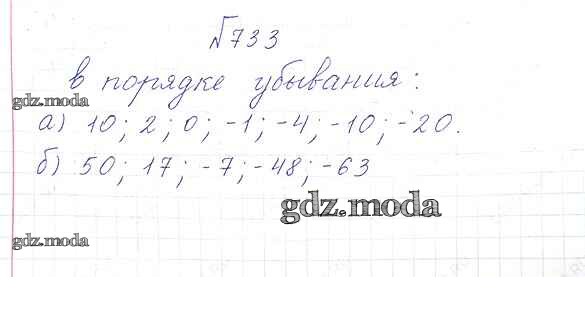 №733
в порядке убывания:
gdz.moda
а) 10; 2; 0; -1; -4; -10; -20.
б) 50; 17; -7; -48; -63
gdz.moda
gdz.moda